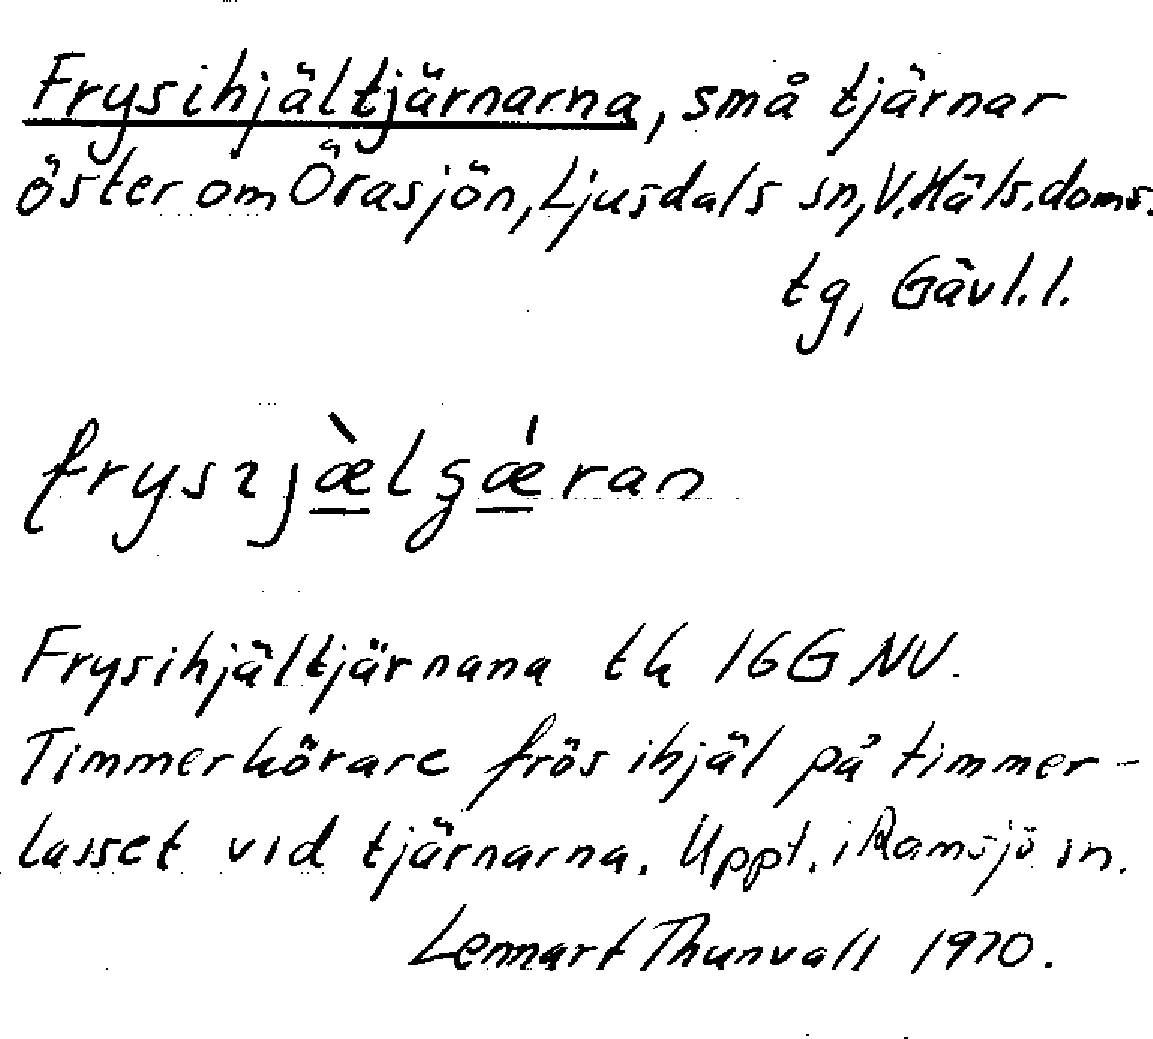 Frysihjältjärnarna, små tjärnar
öster om Örasjön, Ljusdals sn, V. Häls. doms.
tg, Gävl. l.
Frysihjältjärnana tk 16G NV.
Timmerkörare frös ihjäl på timmer-
lasset vid tjärnarna. Uppt. i Ramsjö sn.
Lennart Thunvall 1970.